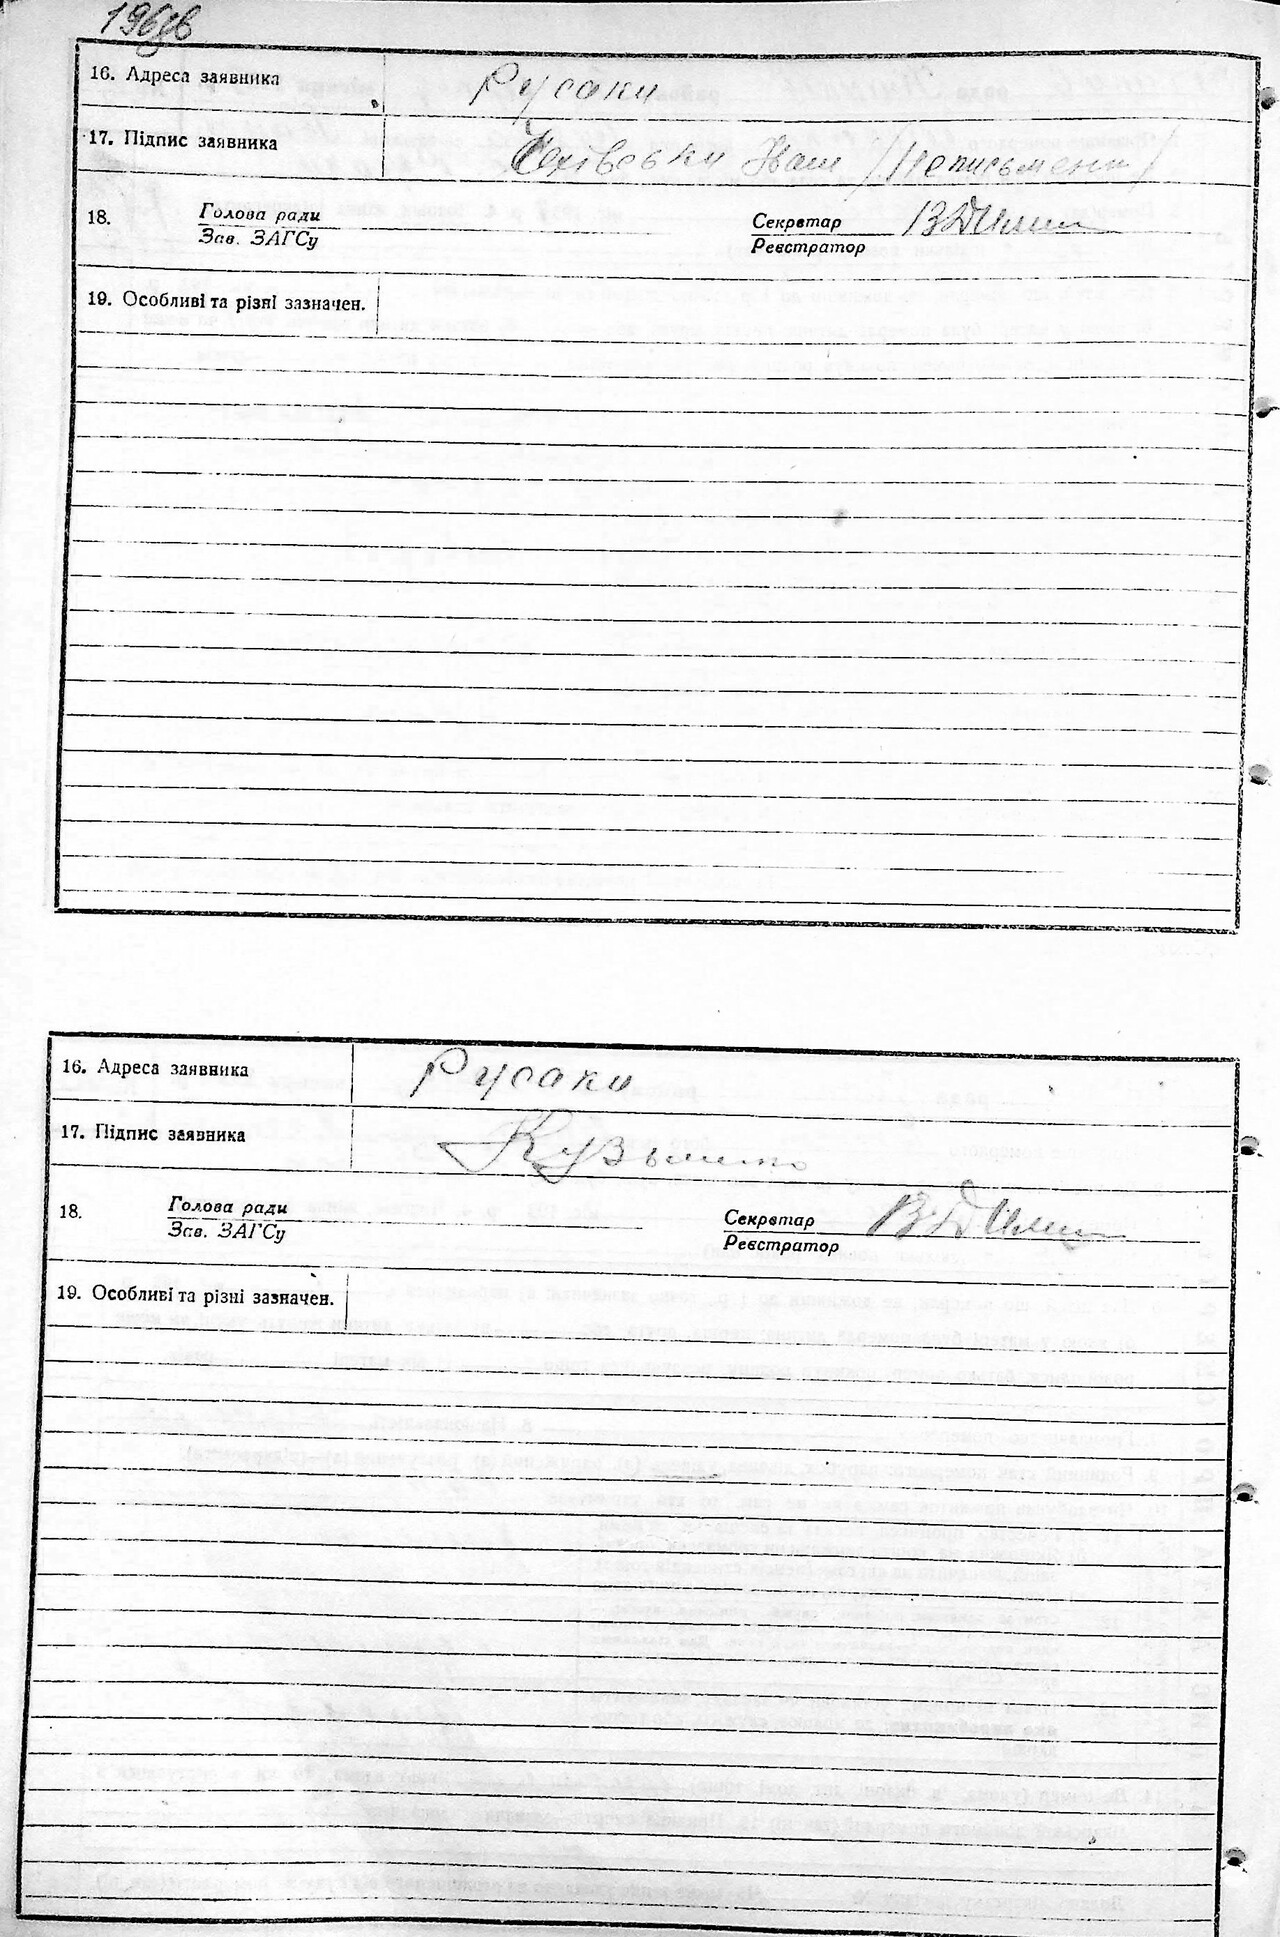 196зв
16. Адреса заявника Русаки
17. Підпис заявника Іван /Неписьменн/
18. Голова ради Секретар
Зав. ЗАГСу Реєстратор
19. Особливі та різні зазначен.
16. Адреса заявника Русаки
17. Підпис заявника Кузьменко
18. Голова ради Секретар
Зав. ЗАГСу Реєстратор
19. Особливі та різні зазначен.